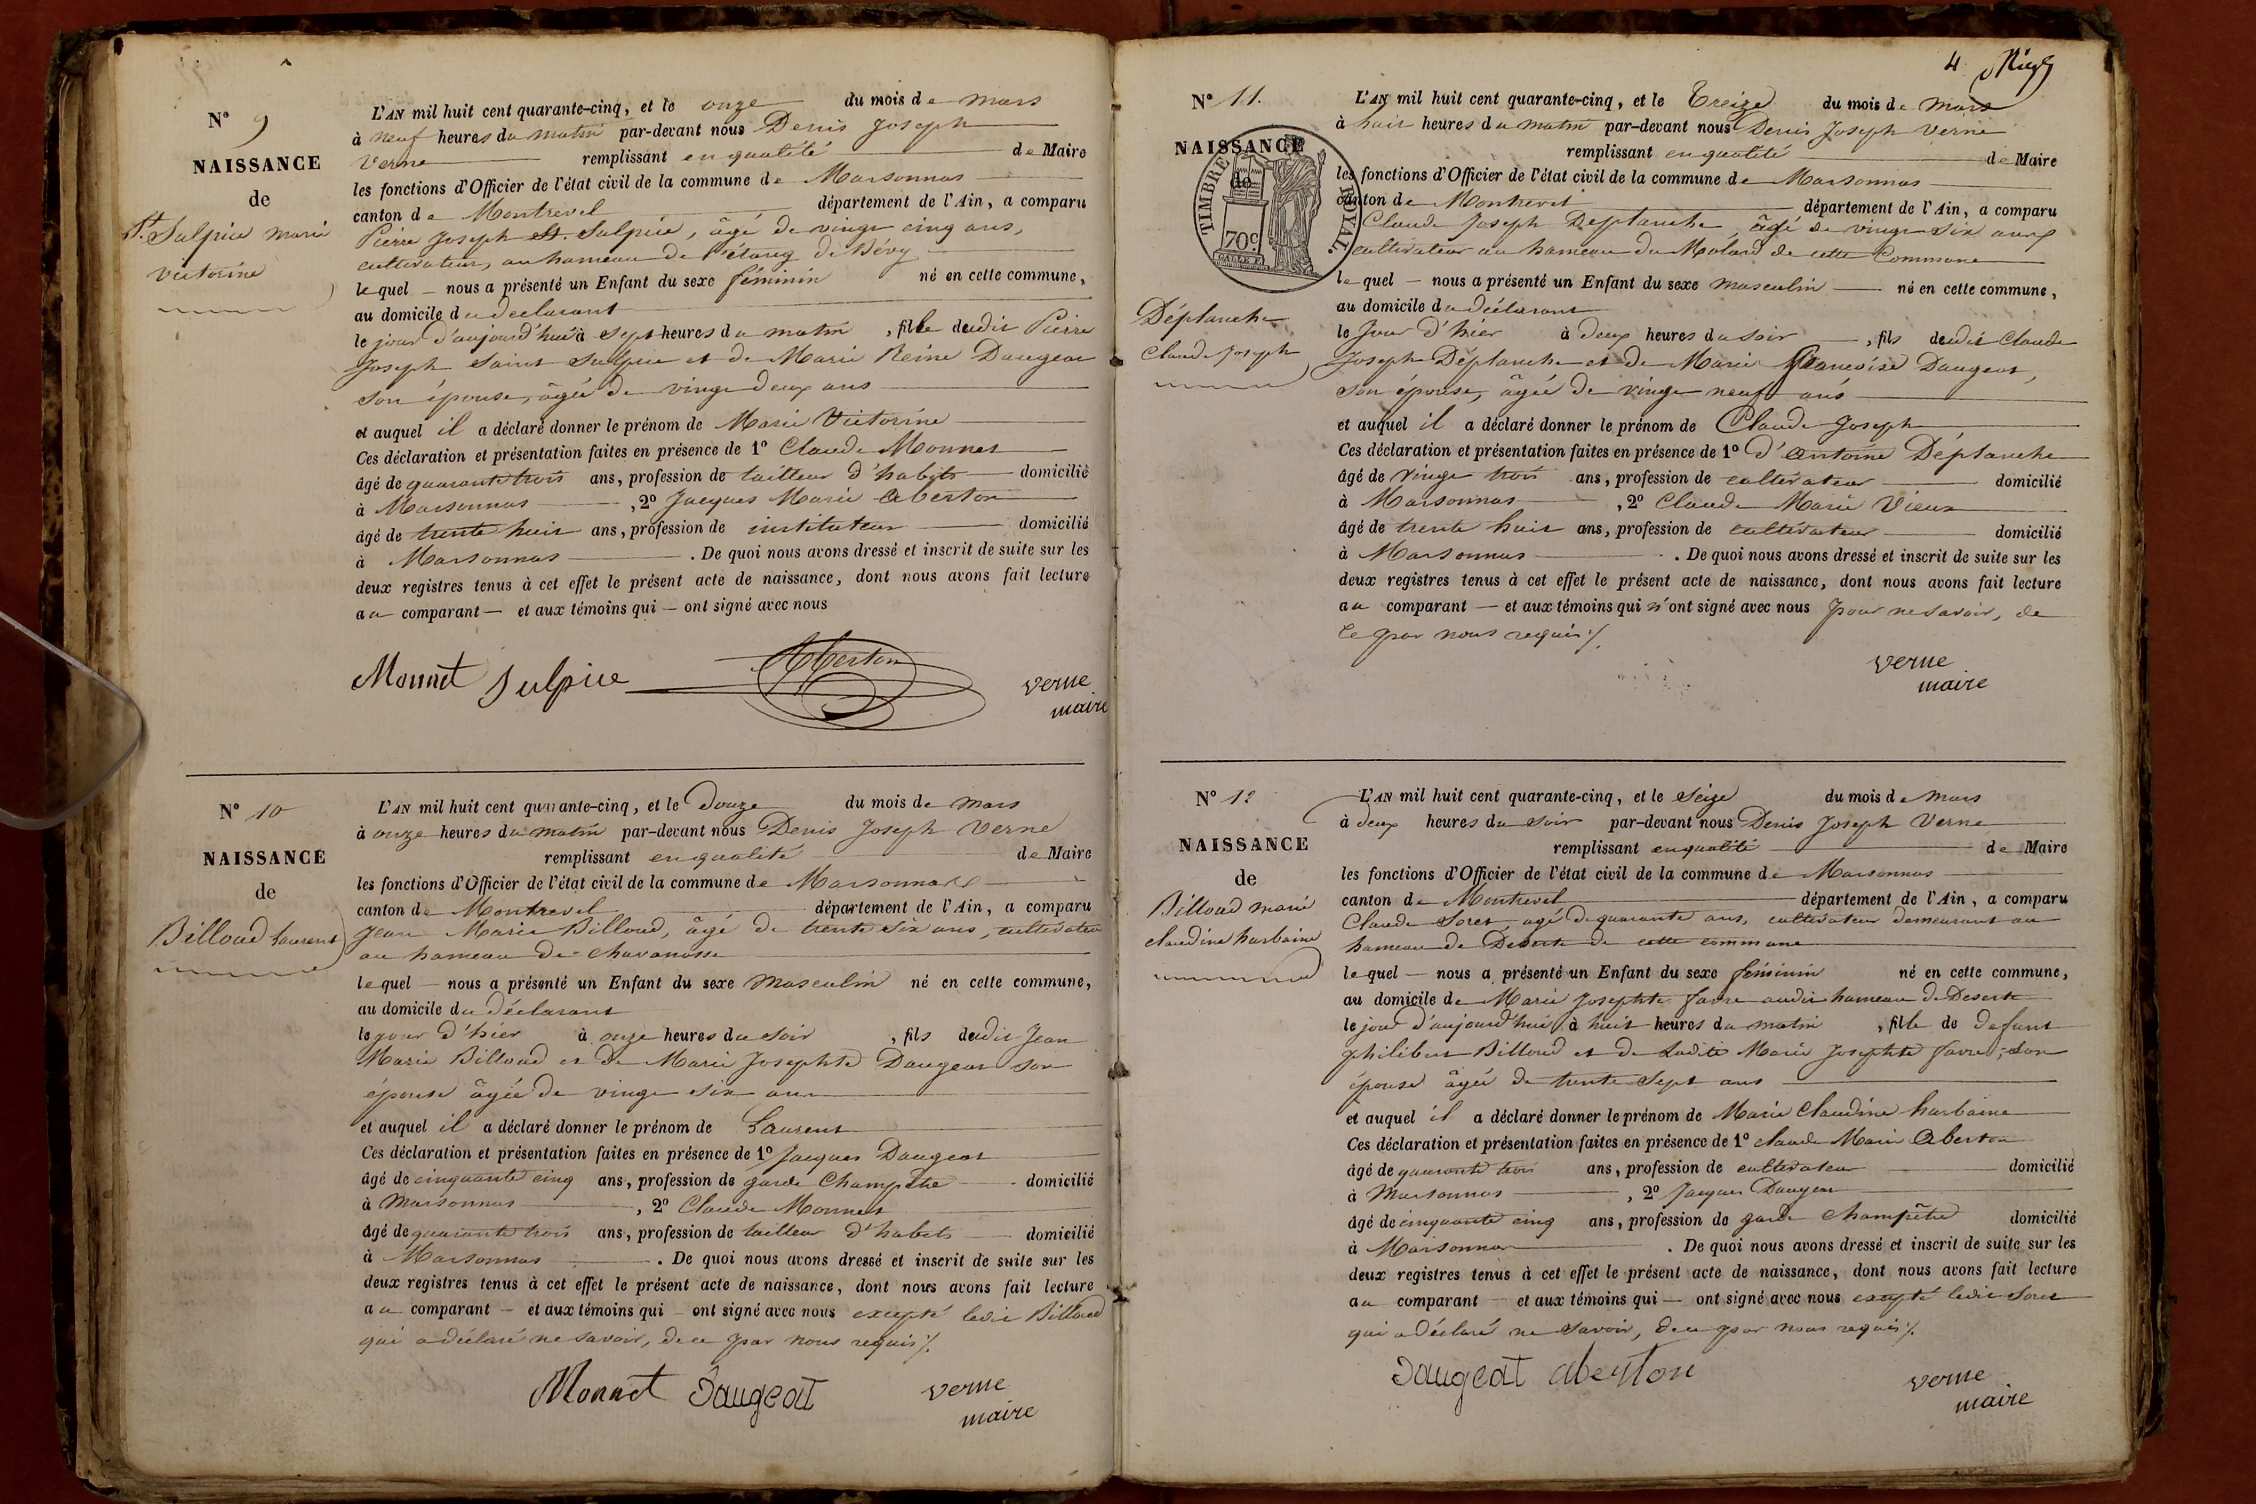 N° 9
NAISSANCE
de
St. Sulpice marie
victorine
L'AN mil huit cent quarante-cinq, et le onze du mois de mars
à neuf heures du matin par-devant nous Denis Joseph
Verne remplissant en qualité de Maire
les fonctions d'Officier de l'état civil de la commune de Marsonnas
canton de Montrevel département de l'Ain, a comparu
Pierre Joseph St. Sulpice, âgé de vingt cinq ans,
cultivateur, au hameau de l'étang de Bévy
lequel nous a présenté un Enfant du sexe féminin né en cette commune,
au domicile du déclarant
le jour d'aujourd'hui à sept heures du matin, fille dudit Pierre
Joseph Saint Sulpice et de Marie Reine Daugeat
son épouse, âgée de vingt deux ans
et auquel il a déclaré donner le prénom de Marie Victorine
Ces déclaration et présentation faites en présence de 1° Claude Monnet
âgé de quarante trois ans, profession de tailleur d'habits domicilié
à Marsonnas, 2° Jacques Marie Aberton
âgé de trente huit ans, profession de instituteur domicilié
à Marsonnas. De quoi nous avons dressé et inscrit de suite sur les
deux registres tenus à cet effet le présent acte de naissance, dont nous avons fait lecture
au comparant et aux témoins qui ont signé avec nous
Monnet Sulpice Aberton verne
maire
N° 10
NAISSANCE
de
Billoud Laurent
L'AN mil huit cent quarante-cinq, et le Douze du mois de mars
à onze heures du matin par-devant nous Denis Joseph Verne
remplissant en qualité de Maire
les fonctions d'Officier de l'état civil de la commune de Marsonnas
canton de Montrevel département de l'Ain, a comparu
Jean Marie Billoud, âgé de trente six ans, cultivateur
au hameau de Chavanosse
lequel nous a présenté un Enfant du sexe masculin né en cette commune,
au domicile du déclarant
le jour d'hier à onze heures du soir, fils dudit Jean
Marie Billoud et de Marie Josephte Daugeat son
épouse âgée de vingt six ans
et auquel il a déclaré donner le prénom de Laurent
Ces déclaration et présentation faites en présence de 1° Jacques Daugeat
âgé de cinquante cinq ans, profession de garde Champêtre domicilié
à Marsonnas, 2° Claude Monnet
âgé de quarante trois ans, profession de tailleur d'habits domicilié
à Marsonnas. De quoi nous avons dressé et inscrit de suite sur les
deux registres tenus à cet effet le présent acte de naissance, dont nous avons fait lecture
au comparant et aux témoins qui ont signé avec nous excepté ledit Billoud
qui a déclaré ne savoir, de ce par nous requis %.
Monnet Daugeat verne
maire
4
N° 11.
NAISSANCE
de
TIMBRE ROYAL
70c.
Déplanche
Claude Joseph
L'AN mil huit cent quarante-cinq, et le Treize du mois de mars
à huit heures du matin par-devant nous Denis Joseph Verne
remplissant en qualité de Maire
les fonctions d'Officier de l'état civil de la commune de Marsonnas
canton de Montrevel département de l'Ain, a comparu
Claude Joseph Deplanche, âgé de vingt six ans,
cultivateur au hameau du Molard de cette Commune
lequel nous a présenté un Enfant du sexe masculin né en cette commune,
au domicile du déclarant
le jour d'hier à deux heures du soir, fils dudit Claude
Joseph Déplanche et de Marie Françoise Daugeat,
son épouse, âgée de vingt neuf ans
et auquel il a déclaré donner le prénom de Claude Joseph
Ces déclaration et présentation faites en présence de 1° d'Antoine Déplanche
âgé de vingt trois ans, profession de cultivateur domicilié
à Marsonnas, 2° Claude Marie Vieux
âgé de trente huit ans, profession de cultivateur domicilié
à Marsonnas. De quoi nous avons dressé et inscrit de suite sur les
deux registres tenus à cet effet le présent acte de naissance, dont nous avons fait lecture
au comparant et aux témoins qui n'ont signé avec nous pour ne savoir, de
ce par nous requis %.
verne
maire
N° 12
NAISSANCE
de
Billoud marie
claudine harbaine
L'AN mil huit cent quarante-cinq, et le Seize du mois de mars
à deux heures du soir par-devant nous Denis Joseph Verne
remplissant en qualité de Maire
les fonctions d'Officier de l'état civil de la commune de Marsonnas
canton de Montrevel département de l'Ain, a comparu
Claude Soret, agé de quarante ans, cultivateur demeurant au
hameau de Deserte de cette commune
lequel nous a présenté un Enfant du sexe féminin né en cette commune,
au domicile de Marie Josephte favre audit hameau de Deserte
le jour d'aujourd'hui à huit heures du matin, fille de defunt
philibert Billoud et de Ladite Marie Josephte favre, son
épouse âgée de trente sept ans
et auquel il a déclaré donner le prénom de Marie Claudine harbaine
Ces déclaration et présentation faites en présence de 1° claude Marie Aberton
âgé de quarante trois ans, profession de cultivateur domicilié
à Marsonnas, 2° Jacques Daugeat
âgé de cinquante cinq ans, profession de garde champêtre domicilié
à Marsonnas. De quoi nous avons dressé et inscrit de suite sur les
deux registres tenus à cet effet le présent acte de naissance, dont nous avons fait lecture
au comparant et aux témoins qui ont signé avec nous excepté ledit Soret
qui a déclaré ne savoir, de ce par nous requis %.
Daugeat aberton verne
maire